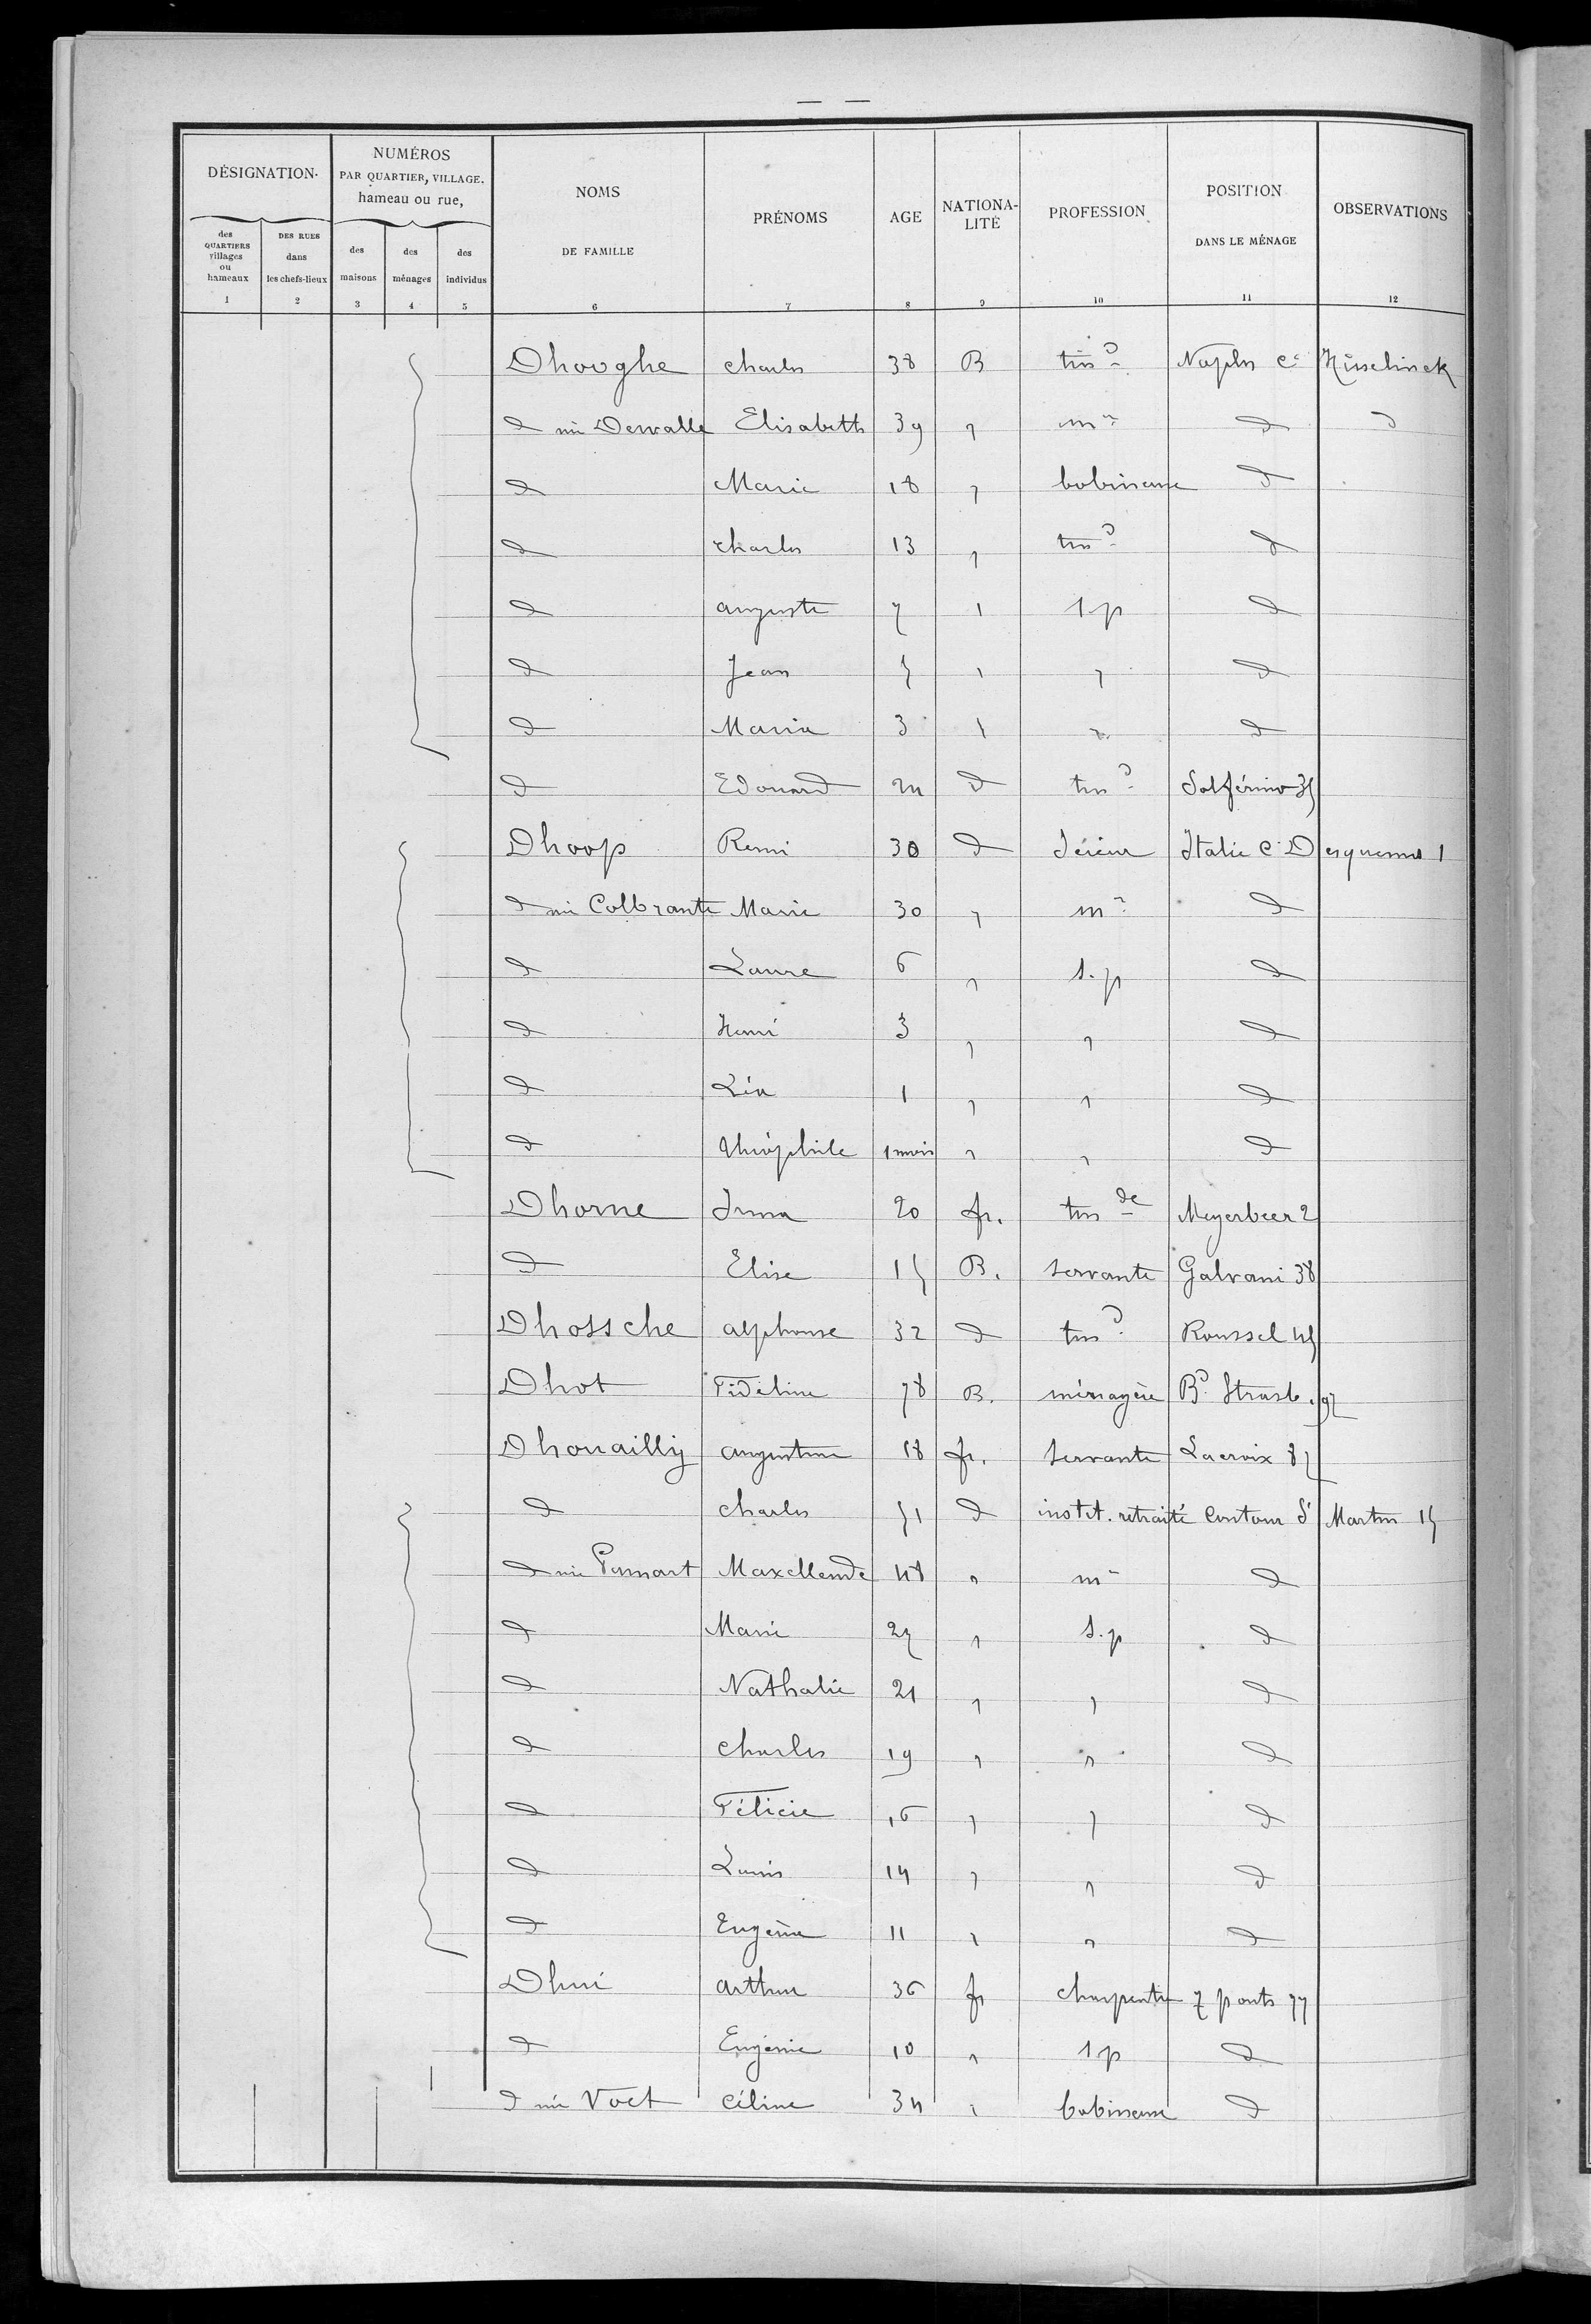 — —
DÉSIGNATION. NUMÉROS PAR QUARTIER, VILLAGE. hameau ou rue, NOMS DE FAMILLE PRÉNOMS AGE NATIONA-LITÉ PROFESSION POSITION DANS LE MÉNAGE OBSERVATIONS
des QUARTIERS villages ou hameaux DES RUES dans les chefs-lieux des maisons des ménages des individus
1 2 3 4 5 6 7 8 9 10 11 12
Dhooghe Charles 38 B tiss d Naples Cr
d née Elisabeth 39 " mre d d
d Marie 18 " bobineuse d
d Charles 13 " tiss d d
d Auguste 7 " s.p d
d Jean 5 " " d
d Maria 3 " " d
d Edouard 24 d tiss d Solférino 35
Dhoop Remi 30 d Italie C. Desquennes 1
d née Colbrante Marie 30 " mre d
d Laure 6 " s.p d
d Henri 3 " " d
d Léa 1 " " d
d Théophile 1 mois " " d
Dhorne Irma 20 fr. tiss de Meyerbeer 2
d Elise 15 B. servante Galvani 38
Dhossche Alphonse 32 d tiss d Roussel 45
Dhot Fidéline 78 B. ménagère Bd Strasb. 92
Dhouailly Augustine 18 fr. servante Lacroix 85
d Charles 51 d instit. retraité Contour St Martin 15
d née Pamart Maxellende 48 " mre d
d Marie 22 " s.p d
d Nathalie 21 " " d
d Charles 19 " " d
d Félicie 16 " " d
d Louis 14 " " d
d Eugène 11 " " d
Arthur 36 fr charpentier 7 ponts 77
d Eugénie 10 " s.p d
d née Voet Céline 34 " bobineuse d